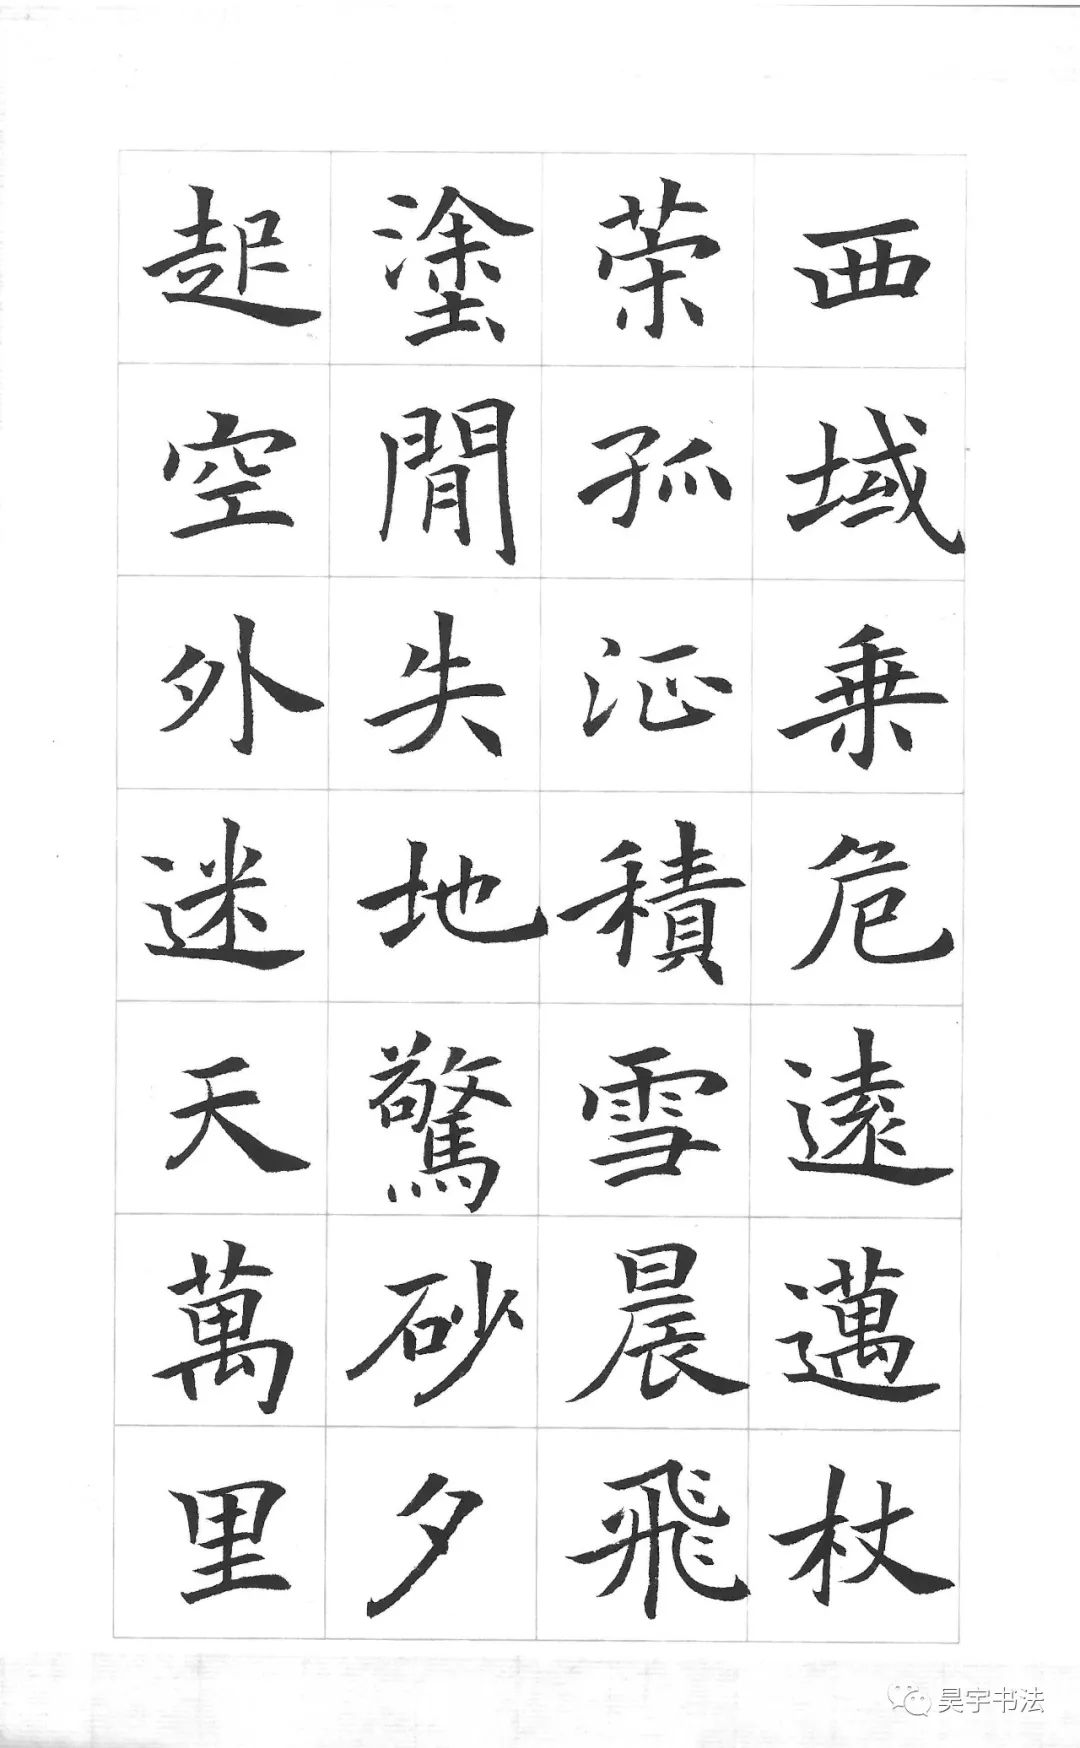 西域乗危遠邁杖
荣孤征積雪晨飛
塗閒失地驚砂夕
起空外迷天萬里
昊宇书法